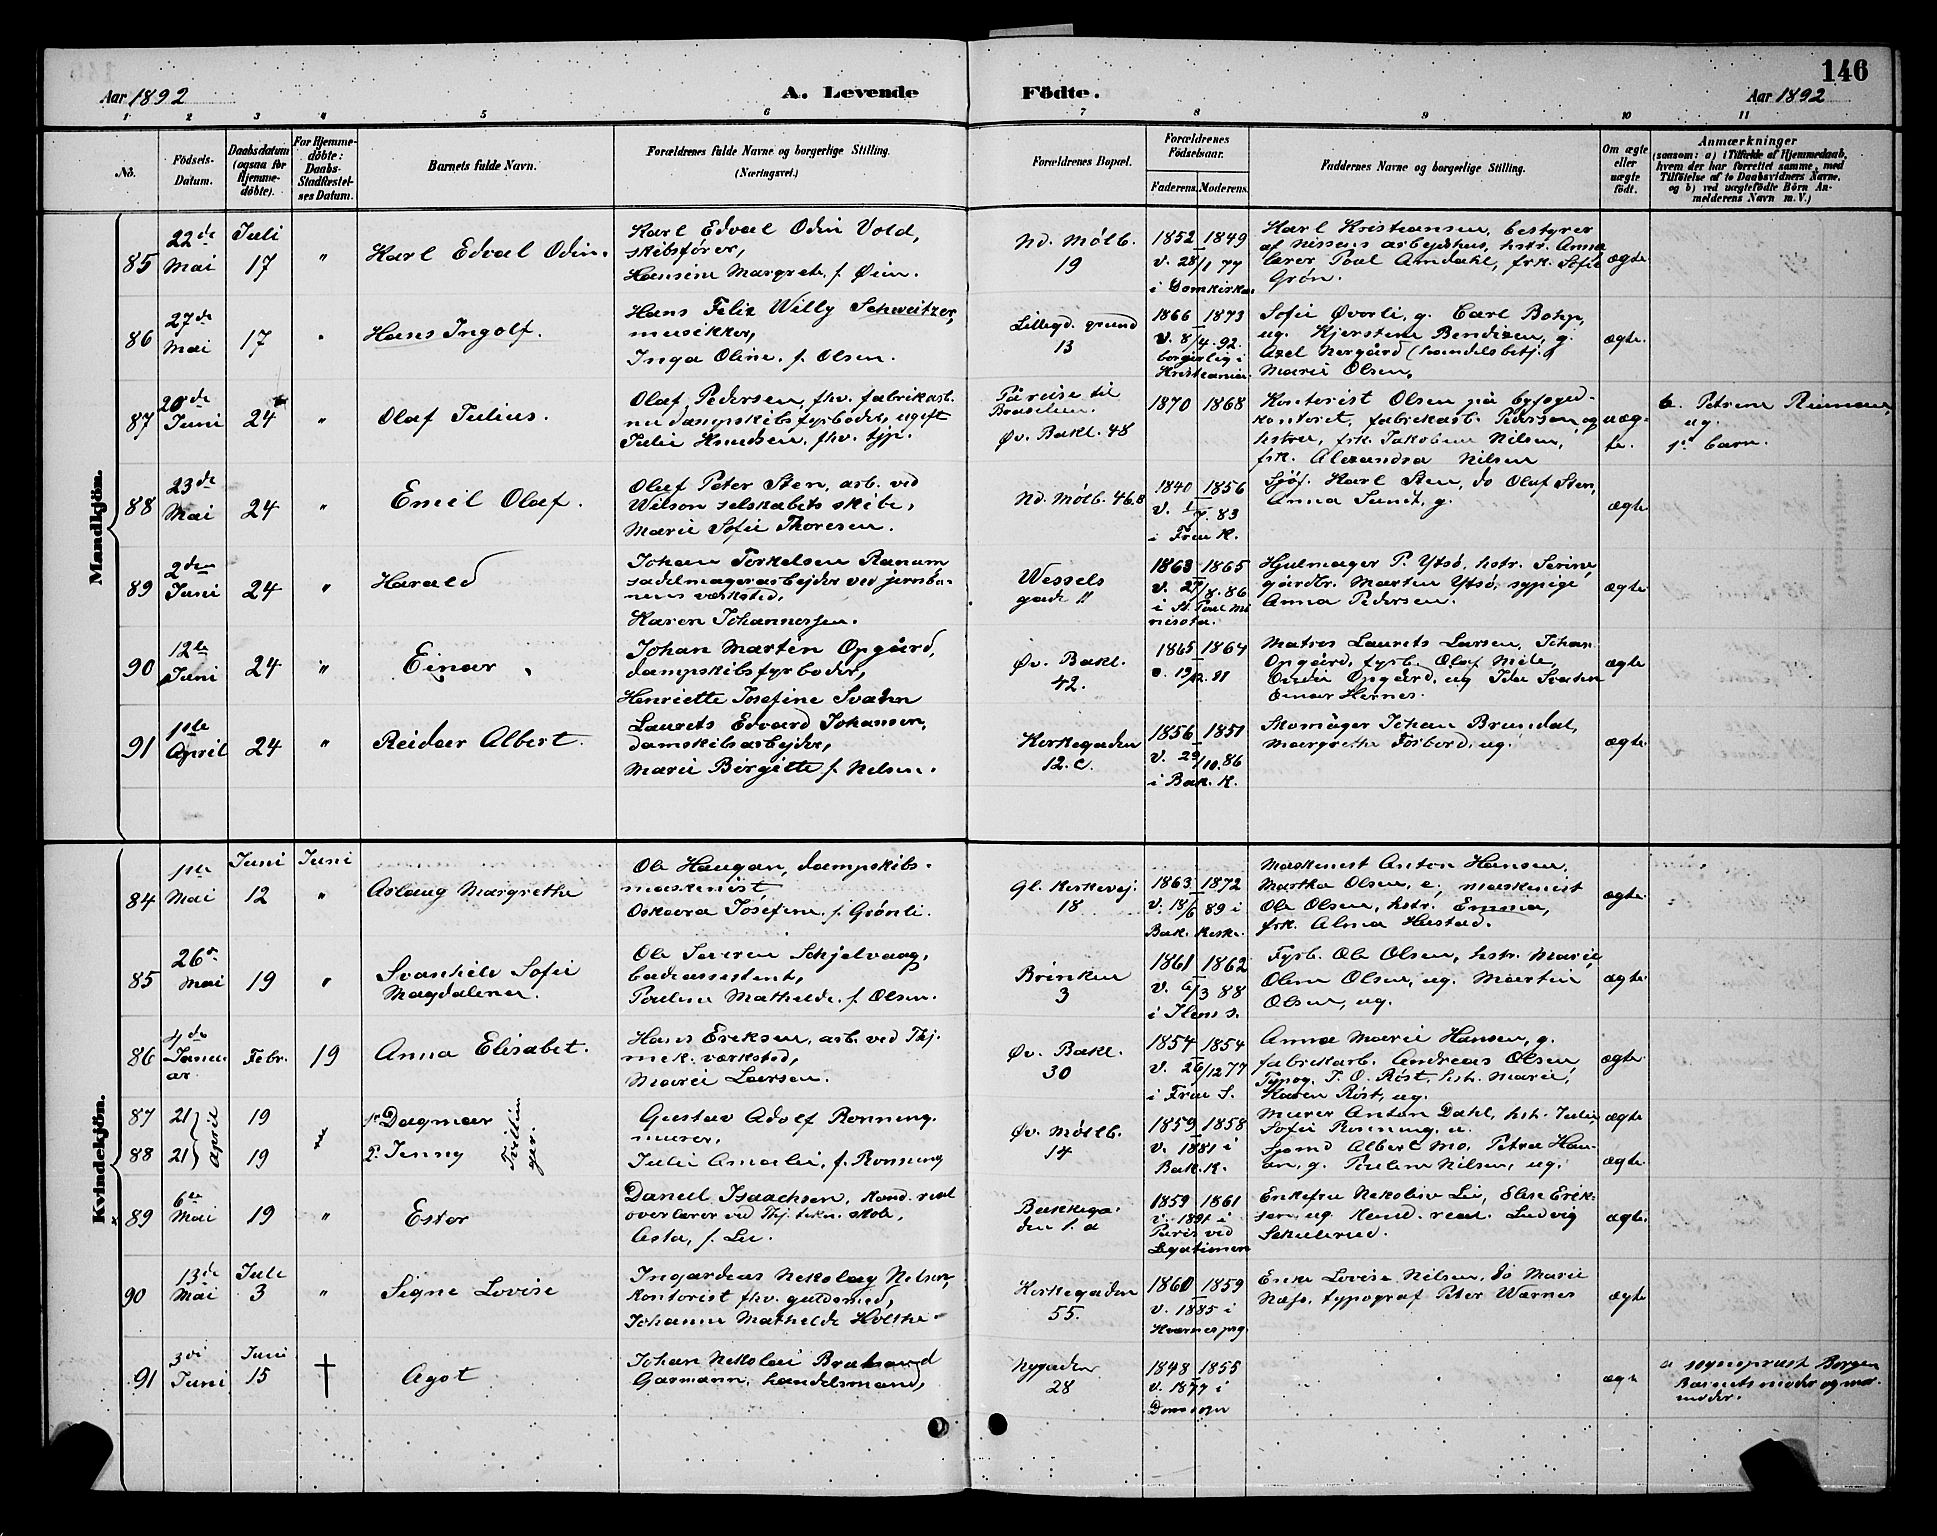 146
Aar 1892
A. Levende Födte.
Aar 1892
1 2 3 4 5 6 7 8 9 10 11
No.
Födsels-
Datum.
Daabsdatum
(ogsaa for
Hjemme-
döbte).
For Hjemme-
döbte:
Daabs-
Stadfæstel-
ses Datum.
Barnets fulde Navn.
Forældrenes fulde Navne og borgerlige Stilling.
(Næringsvei.)
Forældrenes Bopæl.
Forældrenes
Födselsaar.
Faderens. Moderens.
Faddernes Navne og borgerlige Stilling.
Om ægte
eller
uægte
födt.
Anmærkninger
(saasom: a) i Tilfælde af Hjemmedaab,
hvem der har forrettet samme, med
Tilföielse af to Daabsvidners Navne,
og b) ved uægtefödte Börn An-
melderens Navn m. V.)
Mandkjön.
85
22de
Mai
Juli
17
"
Karl Edval Odin.
Karl Edval Odin Vold,
skibsfører,
Hansine Margrete, f. Øien.
Nd. Mølb.
19
1852 1849
v. 28/1 77
i Domkirke.
Karl Kristiansen, bestyrer
af Nissens arbejdshus, hstr. Anna,
lærer Poul Amdahl, frk. Sofie
Grøn.
ægte
86
27de
Mai
17
"
Hans Ingolf.
Hans Felix Willy Schweitzer,
musikker,
Inga Oline, f. Olsen.
Lillegd. grund
13
1866 1873
v. 8/4.92.
borgerlig i
Kristiania.
Sofie Øverli, g. Carl
ug. Kjerstine Bendixen, g.
Axel Nergård (handelsbetj.)
Marie Olsen.
ægte.
87
20de
Juni
24
"
Olaf Julius.
Olaf Pedersen, fhv. fabrikarb.
nu dampskibsfyrbøder, ugift
Julie Knudsen, fhv. tjp.
På reise til
Brasilien.
Øv. Bakl. 48
1870 1868
Kontorist Olsen på byfoged-
kontoret, fabrikarb. Pedersen og
hstru, frk. Jakobine Nilsen,
frk. Alexandra Nilsen
uæg-
te.
b. Petrine
ug.
1ste barn.
88
23de
Mai
24
"
Emil Olaf.
Olaf Peter Sten, arb. ved
Wilson selskabets skibe,
Marie Sofie Thoresen.
Nd. Mølb. 46.B
1840 1856
v. 1/7.83
i Frue K.
Sjøf. Karl Sten, do Olaf Sten,
Anna Sundt, g.
ægte
89
2den
Juni
24
"
Harald
Johan Torkelsen Ranum
sadelmagerarbejder ved jernba-
nens værksted,
Karen Johannessen.
Wessels
gade 11
1863 1865
v. 29/8.86
i St. Poul Mi
nesota.
Hjulmager P. Ytsø, hstr. Serine,
gårdbr. Marten Ytsø, sypige
Anna Pedersen.
ægte
90
12te
Juni
24
"
Einar
Johan Martin Opgård,
dampskibsfyrbøder,
Henriette Josefine Svahn
Øv. Bakl.
42.
1865 1864
v. 19/12.91
Matros Laurits Larsen, Johan
Opgård, fyrb. Olaf Mile,
Emilie Opgård, ug Ida
Einar Hernes.
ægte
91
1ste
April
24
"
Reidar Albert.
Laurits Edvard Johansen,
damskibsarbejder,
Marie Birgitte f. Nilsen.
Kirkegaden
12.C.
1856 1851
v. 29/10.86
i Bak. K.
Skomager Johan Brundal,
Margrethe Forbord, ug.
ægte.
Kvindekjön.
84
1ste
Mai
Juni
12
Juni
"
Aslaug Margrethe
Ole Haugan, dampskibs-
maskinist
Oskara Josefine, f. Grønli.
Gl. Kirkevej.
18
1863 1872
v. 18/6 89 i
Bak. Kirke.
Maskinist Anton Hansen,
Martha Olsen, e., maskinist
Ole Olsen, hstr. Emmia,
frk. Alma Hustad.
ægte
85
26de
Mai
19
"
Svanhild Sofie
Magdalena.
Ole Severin Schjelvaag,
badeassistent,
Pauline Mathilde, f. Olsen.
Brinken
3
1861 1862
v. 6/3 88
i Ilens.
Fyrb. Ole Olsen, hstr. Marie,
Oline Olsen, ug. Martin
Olsen, ug.
ægte
86
4de
Janu
ar
Febr.
19
Anna Elisabet.
Hans Eriksen, arb. ved Thj.
mek. værksted,
Marie Larsen.
Øv. Bakl.
30
1854 1854
v. 26/12 77
i Frue S.
Anna Marie Hansen, g.
fabrikarb. Andreas Olsen
Typog. J. O. Røst, hstr. Marie,
Karen Røst, ug.
ægte
87
21
19
1ste Dagmar
88
21
April
19
"
2. Jenny
Tvillin
ger.
Gustav Adolf Rønning.
murer,
Julie Amalie, f. Rønning
Øv. Mølb.
14
1859 1858
v. 1881 i
Bak. K.
Murer Anton Dahl, hstr. Julie,
Sofie Rønning, u.
Sjømd Albert Mo, Petra Han-
en, g. Pauline Nilsen, ug.
ægte
ægte.
89
6te
Mai
19
"
Ester
Daniel Isaachsen, kand. real
overlærer ved Thj. tekn. skole,
Asta, f. Lie.
Bakkega-
den 1.a
1859 1861
v. 1891 i
Paris ved
Legationen
Enkefru Nikoline Lie, Elise Erik-
sen, ug. Kand. real. Ludvig
Skulerud.
ægte.
90
13de
Mai
Juli
3
"
Signe Lovise
Ingardeas Nikolay Nilsen,
kontorist fhv. guldsmed,
Johanne Mathilde Holthe
Kirkegaden
55.
1860 1859
v. 1885 i
Enke Lovise Nilsen, do Marie
Næss, typograf Peter Wærnes
ægte
91
3die
Juni
Juni
15
†
Agot
Johan Nikolai Bratsand
Garmann, handelsmand,
Nygaden
28
1848 1855
v. 1877 i
Domsogn
ægte
a. sogneprest Borgen
Barnets moder og mor-
moder.